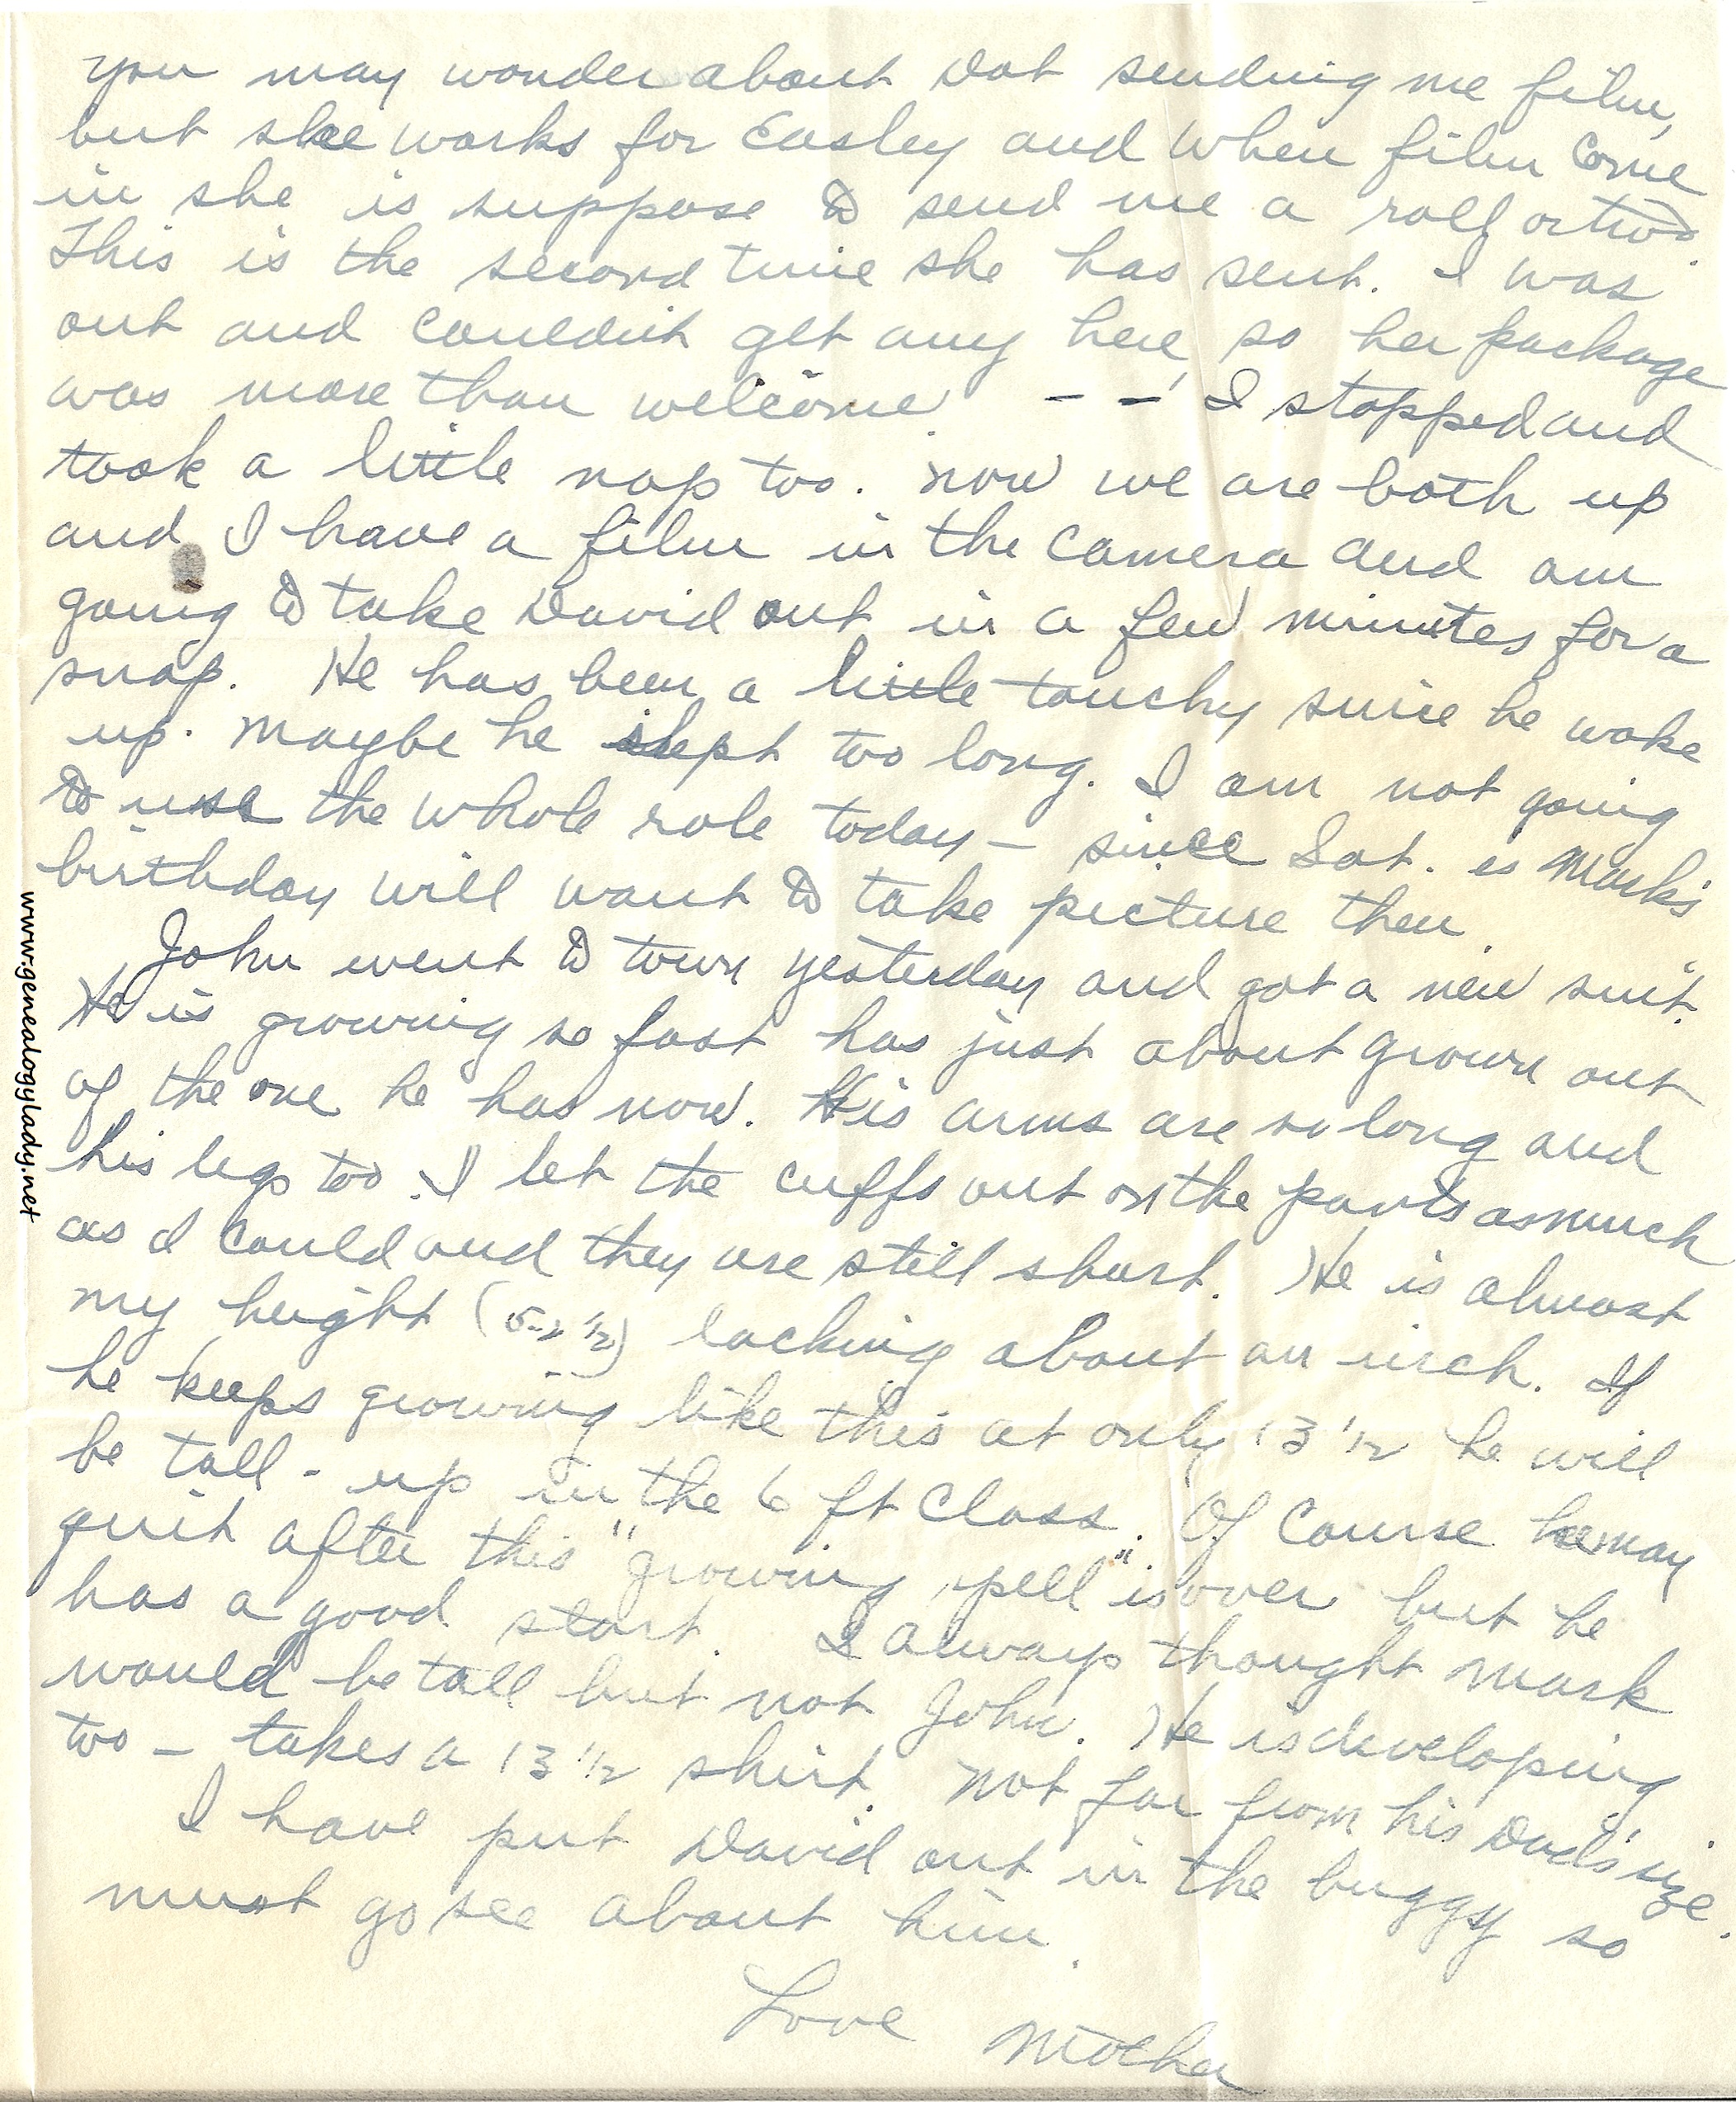 you may wonder about Dot sending me film,
but she works for Easley and when film come
in she is suppose to send me a roll or two.
This is the second time she has sent. I was
out and couldn't get any here, so her package
was more than welcome. - - I stopped and
took a little nap too. Now we are both up
and I have a film in the camera and am
going to take David out in a few minutes for a
snap. He has been a little touchy since he woke
up. Maybe he slept too long. I am not going
to use the whole role today - since Sat. is Mark's
birthday will want to take picture then.
John went to town yesterday and got a new suit.
He is growing so fast has just about grown out
of the one he has now. His arms are so long and
his legs too. I let the cuffs out on the pants as much
as I could and they are still short. He is almost
my height (5-2 1/2) lacking about an inch. If
he keeps growing like this at only 13 1/2 he will
be tall - up in the 6 ft class. Of course he may
quit after this "growing spell" is over but he
has a good start. I always thought Mark
would be tall but not John. He is developing
too - takes a 13 1/2 shirt. Not far from his Dad's size.
I have put David out in the buggy so
must go see about him.
Love Mother
www.genealogylady.net